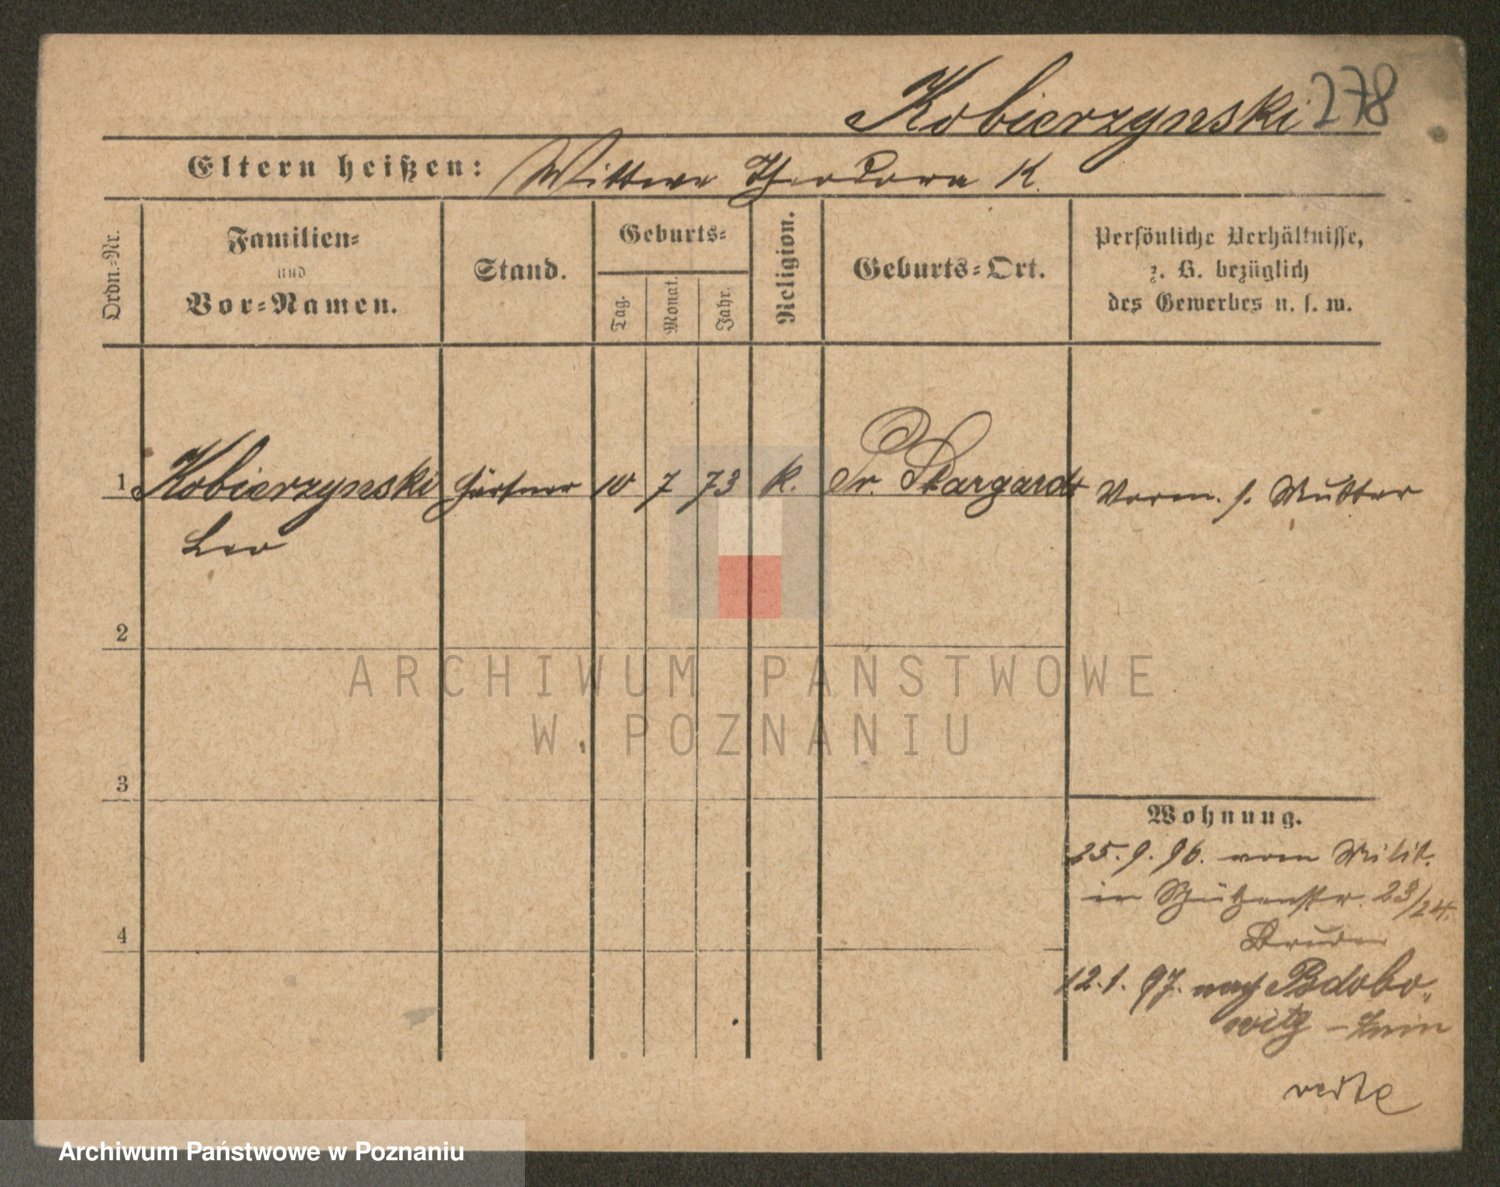 Kobierzynski 278
Eltern heißen: Wittwe Theodora K.
Ordn.-Nr.
Familien-
und
Vor-Namen.
Stand.
Geburts-
Tag.
Monat.
Jahr.
Religion.
Geburts-Ort.
Persönliche Verhältnisse,
z. B. bezüglich
des Gewerbes u. s. w.
1 Kobierzynski Gärtner 10 7 73 k. Pr. Stargardt Verm. s. Mutter
Leo
2
ARCHIWUM PAŃSTWOWE
W POZNANIU
3
Wohnung.
25.9.96. vom Milit.
in Schützenstr. 23/24.
4
12.1.97. nach Bdobo-
witz - Znin
Archiwum Państwowe w Poznaniu